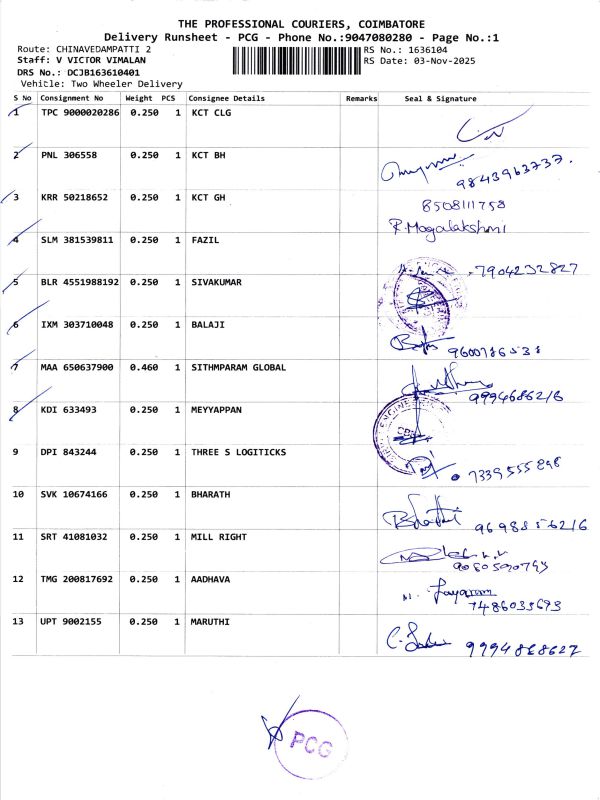 THE PROFESSIONAL COURIERS, COIMBATORE
Delivery Runsheet - PCG - Phone No.:9047080280 - Page No.:1
Route: CHINAVEDAMPATTI 2 RS No.: 1636104
Staff: V VICTOR VIMALAN RS Date: 03-Nov-2025
DRS No.: DCJB163610401
Vehicle: Two Wheeler Delivery
S No Consignment No Weight PCS Consignee Details Remarks Seal & Signature
1 TPC 9000020286 0.250 1 KCT CLG
2 PNL 306558 0.250 1 KCT BH
9843963737.
3 KRR 50218652 0.250 1 KCT GH 8508111758
R.Mogalakshmi
4 SLM 381539811 0.250 1 FAZIL
7904232827
5 BLR 4551988192 0.250 1 SIVAKUMAR
6 IXM 303710048 0.250 1 BALAJI
7 MAA 650637900 0.460 1 SITHMPARAM GLOBAL
9994686216
8 KDI 633493 0.250 1 MEYYAPPAN
9 DPI 843244 0.250 1 THREE S LOGITICKS
7339555898
10 SVK 10674166 0.250 1 BHARATH
Bharathi 9698856216
11 SRT 41081032 0.250 1 MILL RIGHT
12 TMG 200817692 0.250 1 AADHAVA
7486035693
13 UPT 9002155 0.250 1 MARUTHI
9994868627
PCG